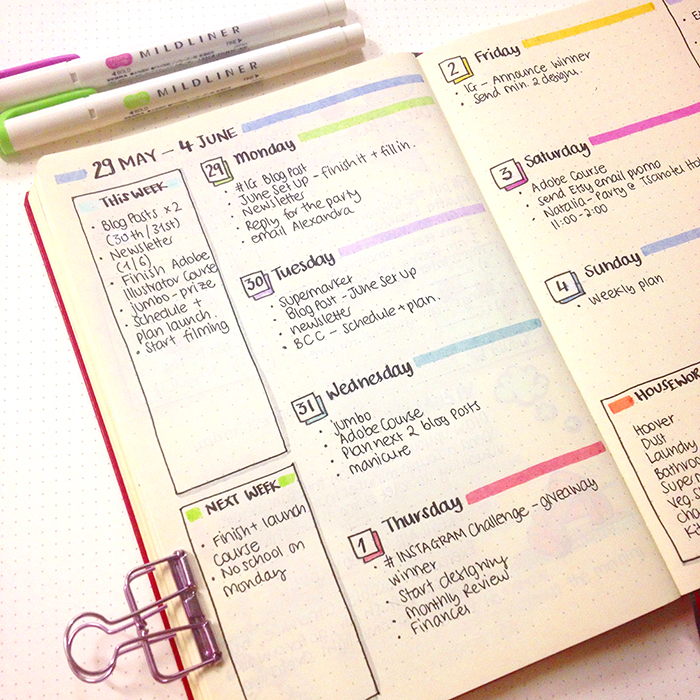 MILDLINER
MILDLINER
29 MAY — 4 JUNE
THIS WEEK
• Blog Posts x 2
(30th/31st)
• Newsletter
(1/6)
• Finish Adobe
Illustrator Course
• jumbo - prize
• Schedule +
plan launch.
• Start filming
NEXT WEEK
• Finish + launch
Course
• No school on
monday
29 Monday
• #IG Blog Post
• June Set Up - finish it + fill in.
• Newsletter
• Reply for the party
• email Alexandra
30 Tuesday
• Supermarket
• Blog Post - June Set up
• newsletter
• BCC - schedule + plan.
31 Wednesday
• jumbo
• Adobe Course
• Plan next 2 blog posts
• manicure
1 Thursday
• # INSTAGRAM Challenge - giveaway
winner
• Start designing
• Monthly Review
• Finances
2 Friday
• IG - Announce winner
• Send min. 2 designs.
3 Saturday
• Adobe Course
• Send Etsy email promo
• Natalia - Party @
11:00 - 2:00
4 Sunday
• Weekly plan
HOUSEWOR
Hoover
Dust
Laundry
Bathroo
Super
Veg.